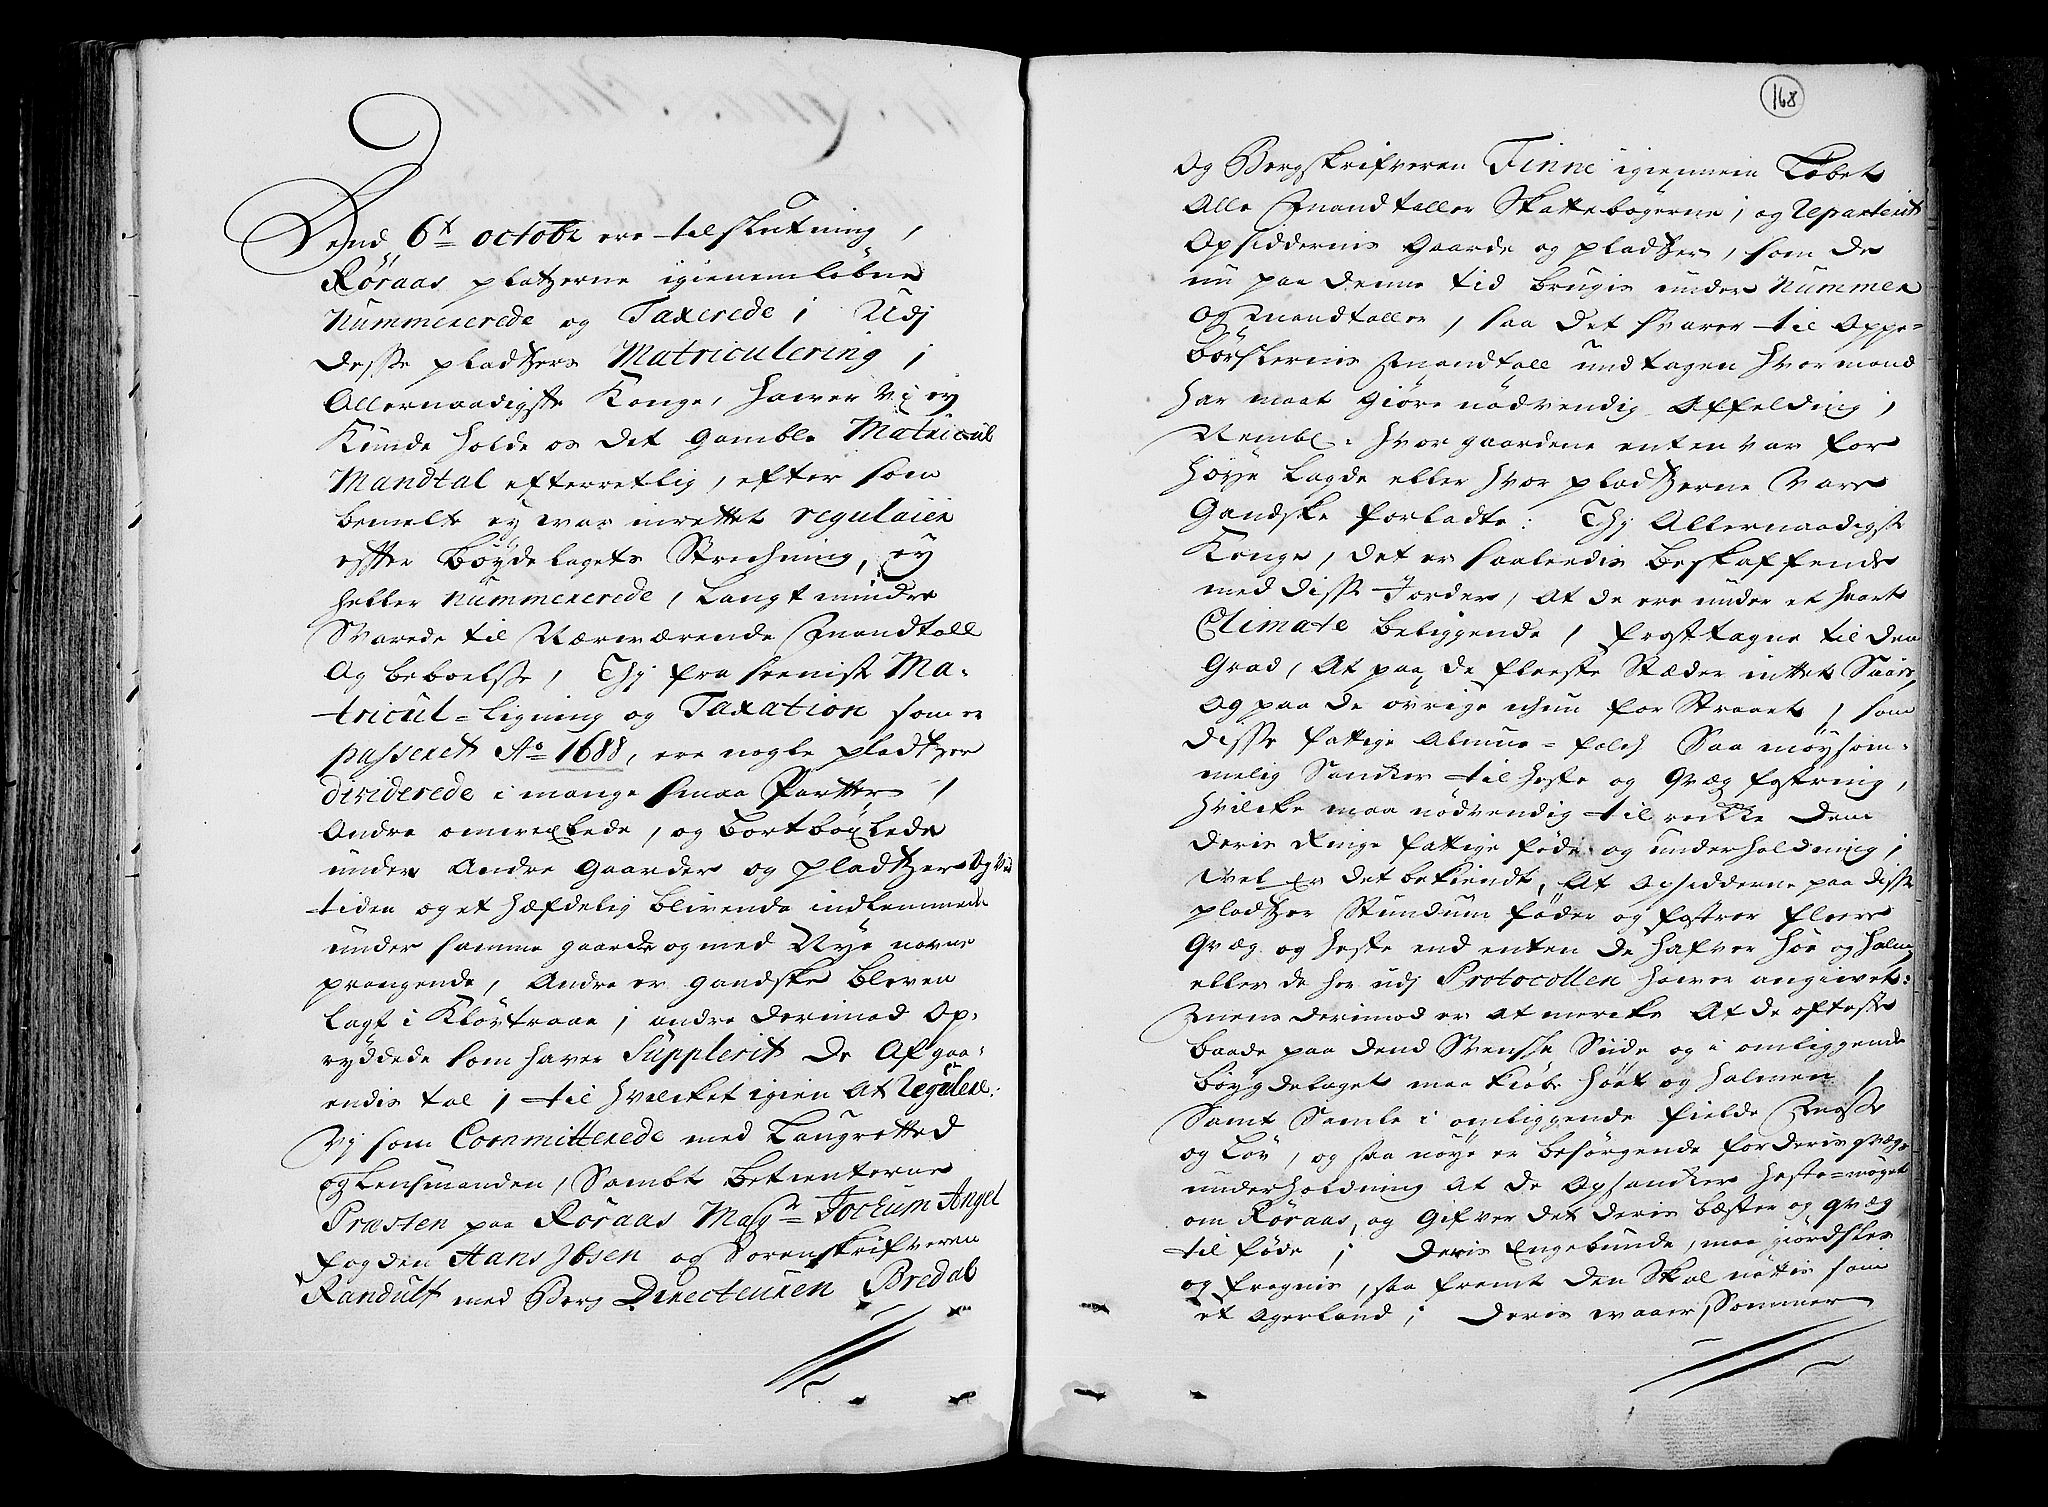 Dend 6t octobr ere til slutning,
Røraas platzerne igienemløbne
Nummererede og Taxerede; Udj
desse pladtzers Matriculering;
Allernaadigste Konge, hawer Vi ey
Kunde holde os det gamble Matricul
Mandtal efterretlig, efter som
bemelte ey war inrettet regulaier
effter Bøydelagets Strechning, ey
heller nummererede, Langt mindre
Svarede til Nærwærende Mandtall
Og beboelse, Thj fra seeniste Ma-
tricul-ligning og Taxation som er
passeret Ao 1688, ere nogle pladtzer
dividerede i mange smaa Parter,
Andre omvexlede, og bortbøxlede
under Andre Gaarder og pladtzer Og Ved
tiden og et hæfdelig blivende indlemmede
under samme gaarde og med Nye navne
prangende, Andre er gandske bleven
lagt i Kløvtraae; andre derimod Op-
ryddede som haver Supplerit de Afgaa-
endis tal; til hvilcket igien at Regulere:
Vj som Committerede med Laugretted
og Lensmanden, Sambt betienterne
Præsten paa Røraas Magr Jochum Angel
fogden Hans Jbsen og Sorenskrifveren
Randulf med Berg Directeuren Bredal
168
Og Bergskrifveren Finne igiennem Løbet
Alle Mandtaller Skattebøgerne; og Reparterit
Opsiddernis Gaarde og pladtzer, som de
nu paa denne tid brugis under Nummer
Og Mandtaller, saa det svarer til Oppe-
børslernis Mandtall undtagen hvor mand
har maat Giøre nødvendig Affelding;
Nembl: hvor gaardene enten var for
høye Lagde eller hvor pladtzerne Vare
Gandske forladte: Thj Allernaadigste
Konge, det er saaleedis beskaffende
med disse Jorder, At de ere under et haart
Climate beliggende, frosttagne til den
Grad, At paa de fleeste Stæder inttet Saais,
Og paa de øvrige ichun for Straaet, som
disse fattige Almue-folch Saa møysom-
melig Sancker til heste og Qvæg fostring,
hvilcke maa nødvendig til recke dem
deris Ringe fattige føde og underholdning;
Vel er det bekiendt, At Opsidderne paa disse
pladtzer Stundum føder og fostrer fleere
Qvæg og heste end enten de hafver høe og halm
eller de her udj Protocollen hawer angivet:
Mens derimod er At mercke At de ofteste
baade paa dend Svenske Siide og i omliggende
bøygdelaget maa kiøbe høet og halmen,
Samt Samle i omliggende fielde Mosse
og Løv, og saa nøye er besørgende for deris qvægs
underholdning At de Opsancker heste-møget
om Røraas, og Gifver det deris bæster og qvæg
til føde; Deris Engebunde, maa giødskes
og fregnis, saa fremt den Skal nøttis som
et Agerland; Deris waaer, Sommer